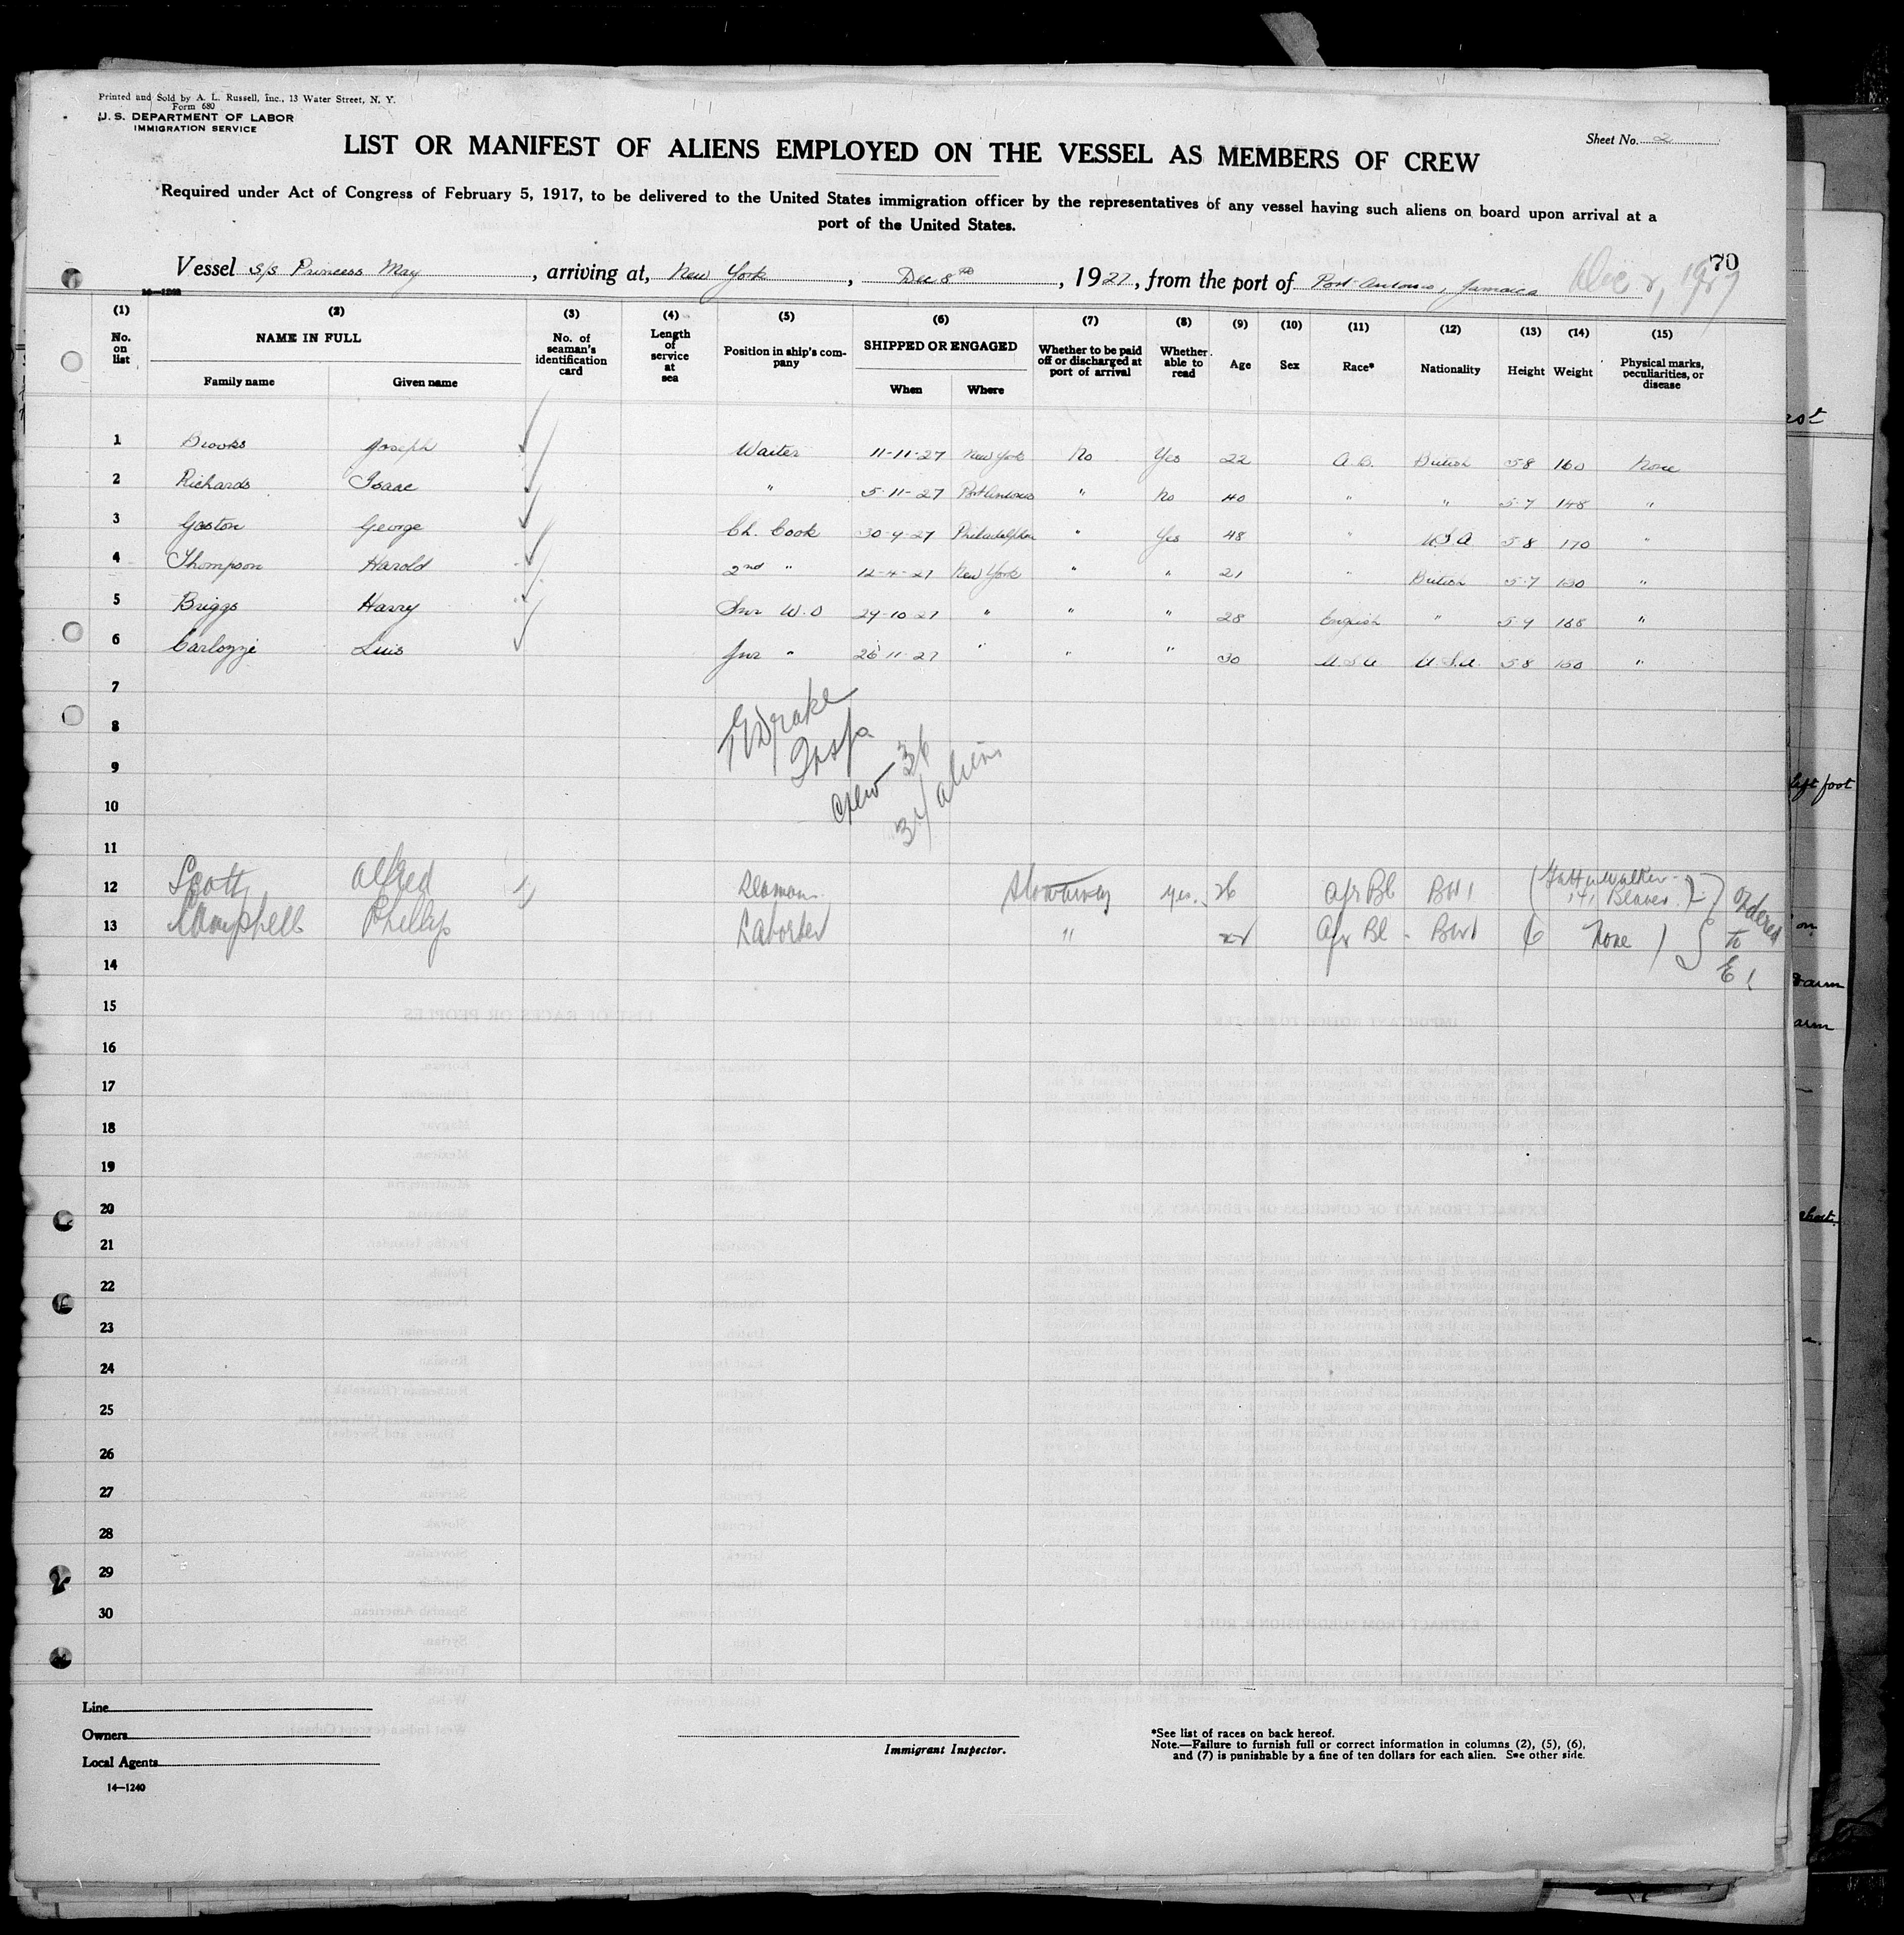 Printed and Sold by A. L. Russell, Inc., 13 Water Street, N. Y.
Form 680
U. S. DEPARTMENT OF LABOR
IMMIGRATION SERVICE
Sheet No. 2
LIST OR MANIFEST OF ALIENS EMPLOYED ON THE VESSEL AS MEMBERS OF CREW
Required under Act of Congress of February 5, 1917, to be delivered to the United States immigration officer by the representatives of any vessel having such aliens on board upon arrival at a
port of the United States.
70
Vessel S/S Princess May, arriving at, New York, Dec 8th, 1927, from the port of Port Antonio, Jamaica
(1) (2) (3) (4) (5) (6) (7) (8) (9) (10) (11) (12) (13) (14) (15)
No. on list NAME IN FULL Family name Given name No. of seaman's identification card Length of service at sea Position in ship's company SHIPPED OR ENGAGED When Where Whether to be paid off or discharged at port of arrival Whether able to read Age Sex Race* Nationality Height Weight Physical marks, peculiarities, or disease
1 Brooks Joseph Waiter 11-11-27 New York No Yes 22 A.B. British 5 8 160 None
2 Richards Isaac " 5-11-27 Port Antonio " No 40 " " 5-7 148 "
3 Gaston George Ch. Cook 30-9-27 Philadelphia " Yes 48 " U.S.A. 5 8 170 "
4 Thompson Harold 2nd " 12-4-27 New York " " 21 " British 5-7 130 "
5 Briggs Harry Snr W.O 29-10-27 " " " 28 English " 5 9 168 "
6 Carlozzi Luis Jnr " 26 11-27 " " " 30 U.S.A. U.S.A. 5 8 150 "
7
8 Drake
9 Insp
10 Crew 36
11 aliens
12 Scott Alfred Seaman Stowaway yes. 26 Afr Bl BWI Walker
13 Campbell Phillip Laborer " Afr Bl - BWI None Ordered
14 To E I
15
16
17
18
19
20
21
22
23
24
25
26
27
28
29
30
Line
Owners
Local Agents
14—1240
Immigrant Inspector.
*See list of races on back hereof.
Note.—Failure to furnish full or correct information in columns (2), (5), (6),
and (7) is punishable by a fine of ten dollars for each alien. See other side.
left foot
arm